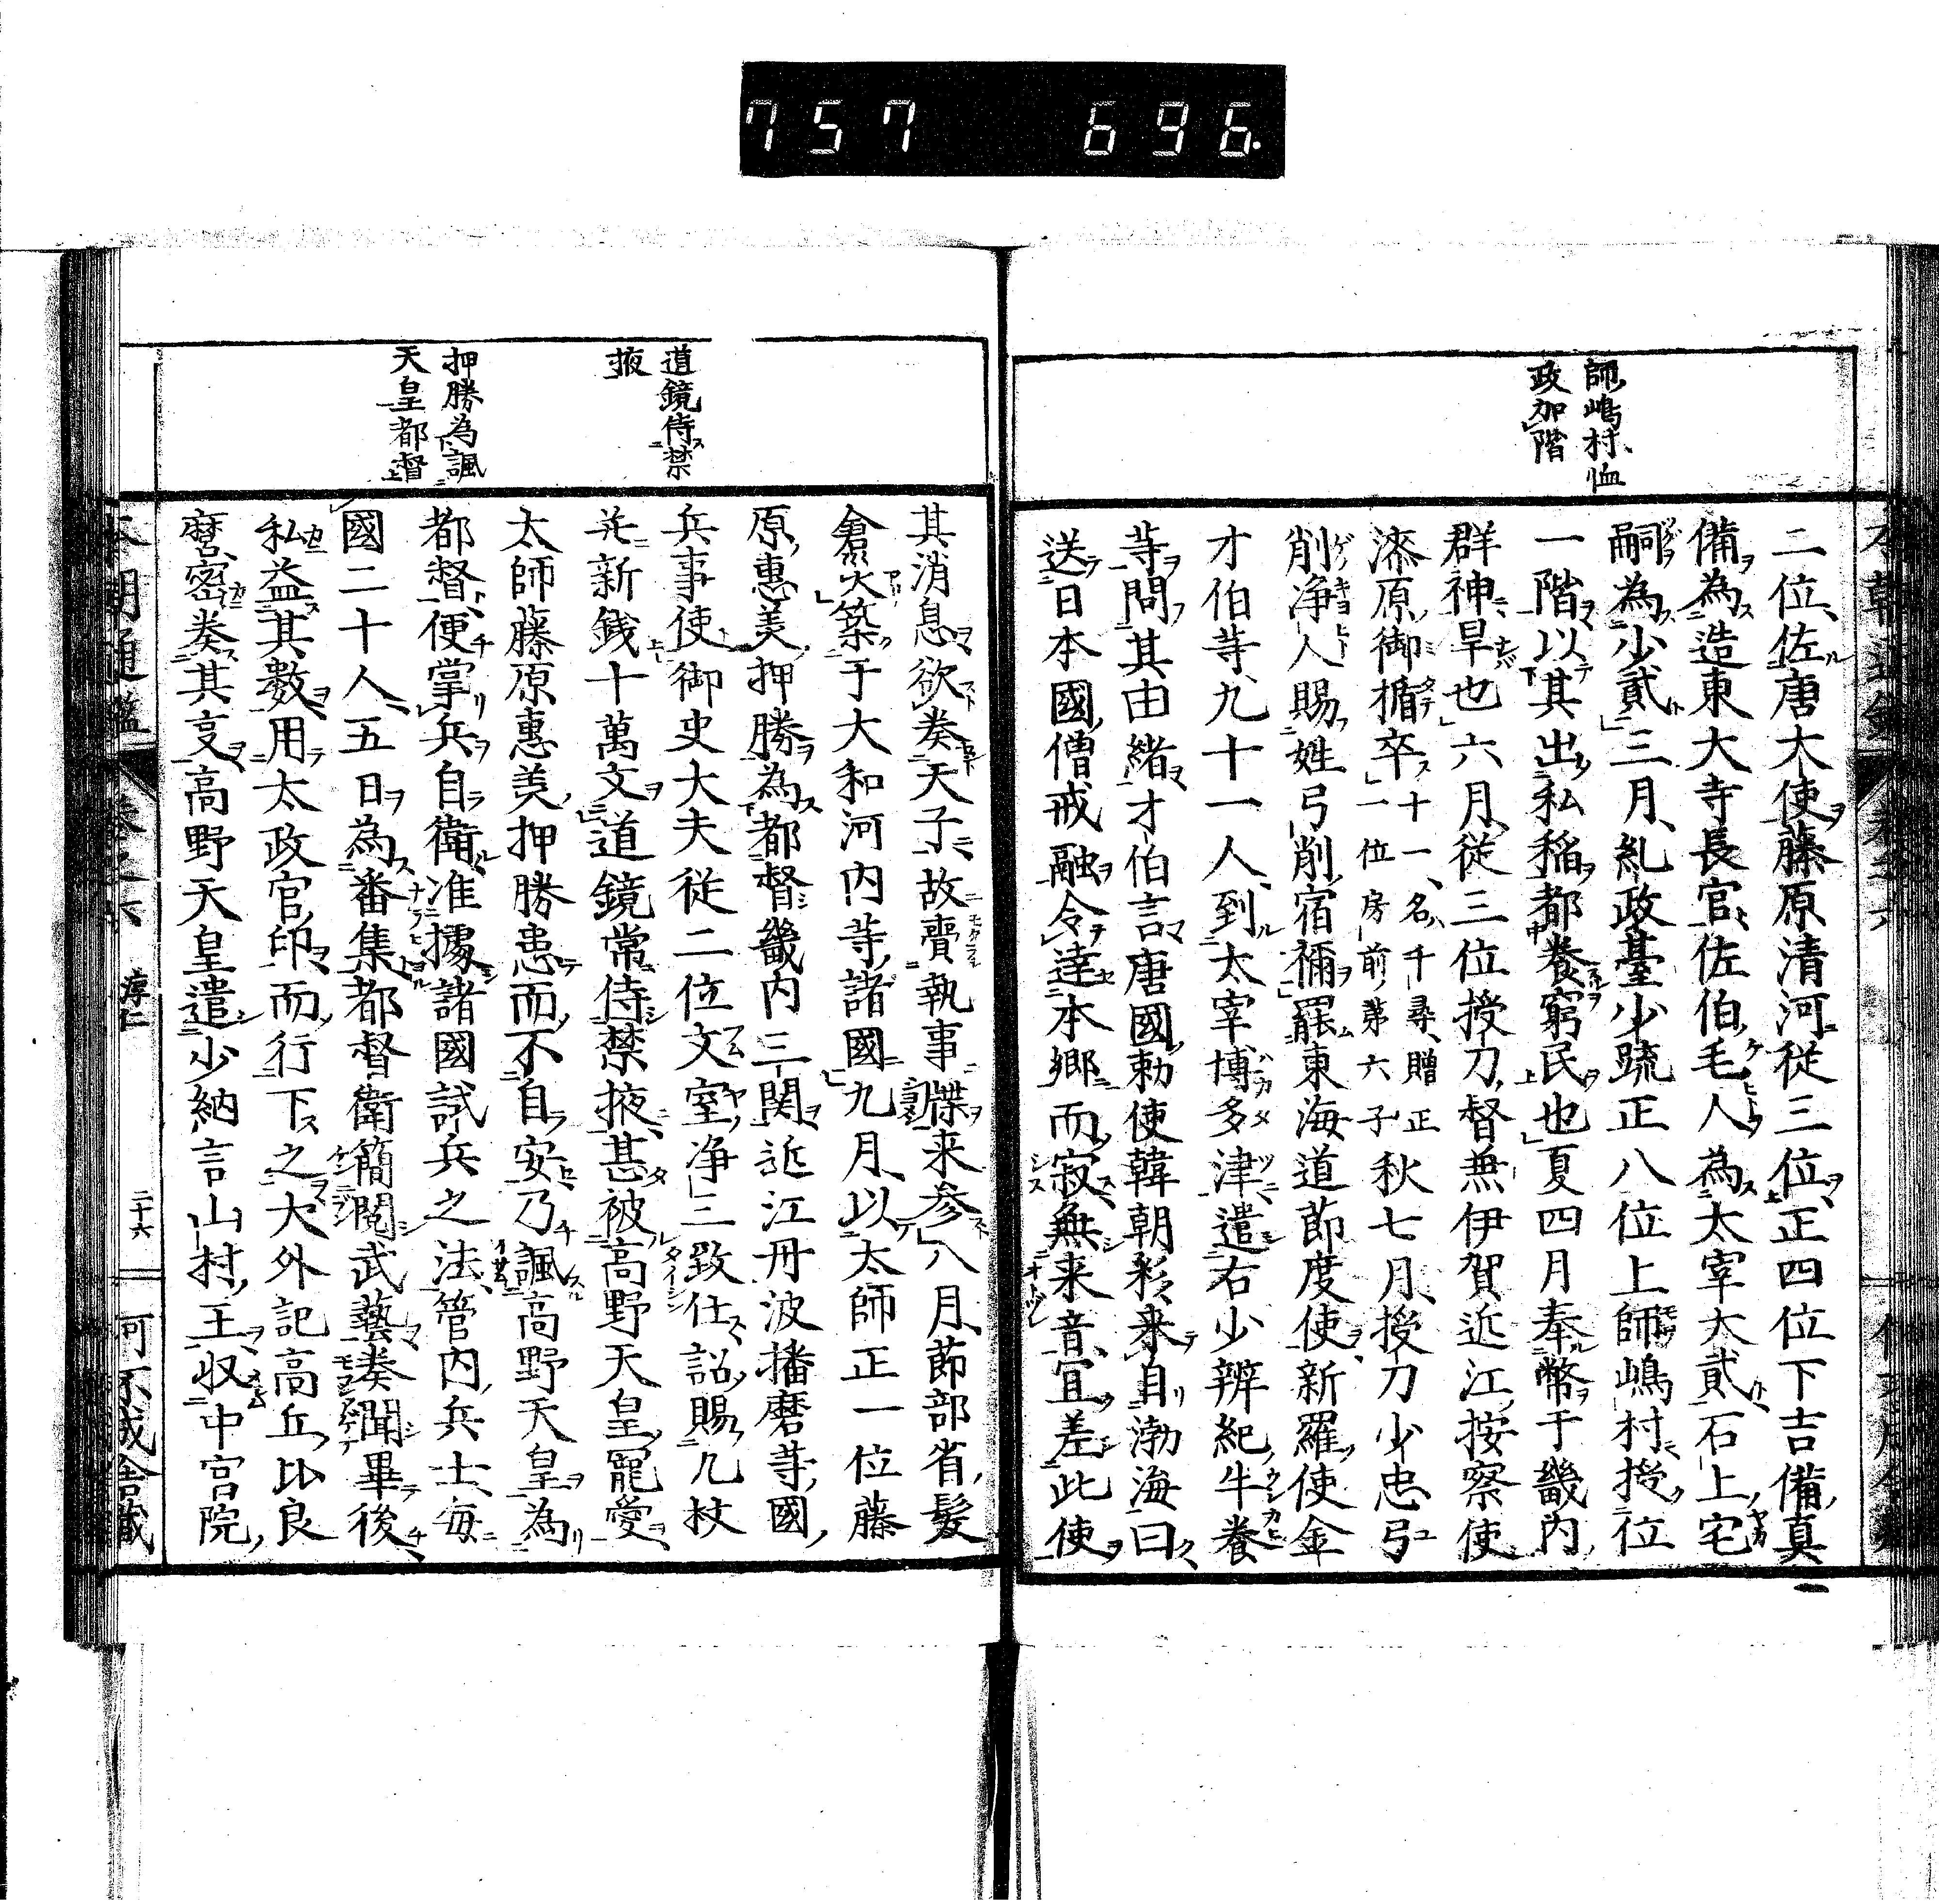 757 696.
師嶋村恤
政加階
二位佐唐大使藤原清河從三位正四位下吉備真
備為造東大寺長官佐伯毛人為太宰大貳石上宅
嗣為少貳三月糺政臺少疏正八位上師嶋村授位
一階以其出私稲都養窮民也夏四月奉幣于畿内
群神旱也六月從三位授刀督兼伊賀近江按察使
藤原御楯卒十一名千尋贈正
一位房前第六子秋七月授刀少忠弓
削浄人賜姓弓削宿禰罷東海道節度使新羅使金
才伯等九十一人到太宰博多津遣右少辨紀牛養
等問其由緒才伯言唐國勅使韓朝彩来自渤海曰
送日本國僧戒融令達本郷而寂無来音宜差此使
道鏡侍禁
掖
押勝為諷
天皇都督
其消息欲奏天子故賷執事牒来參八月節部省髮
倉災築于大和河内等諸國九月以太師正一位藤
原惠美押勝為都督畿内三関近江丹波播磨等國
兵事使御史大夫從二位文室浄三致仕詔賜几杖
并新銭十萬文道鏡常侍禁掖甚被高野天皇寵愛
太師藤原惠美押勝患而不自安乃諷高野天皇為
都督便掌兵自衛准據諸國試兵之法管内兵士毎
國二十人五日為番集都督衛簡閲武藝奏聞畢後
私益其數用太政官印而行下之大外記高丘比良
麿密奏其㕝高野天皇遣少納言山村王収中宮院
本朝通鑑 卷之六 淳仁 二十六